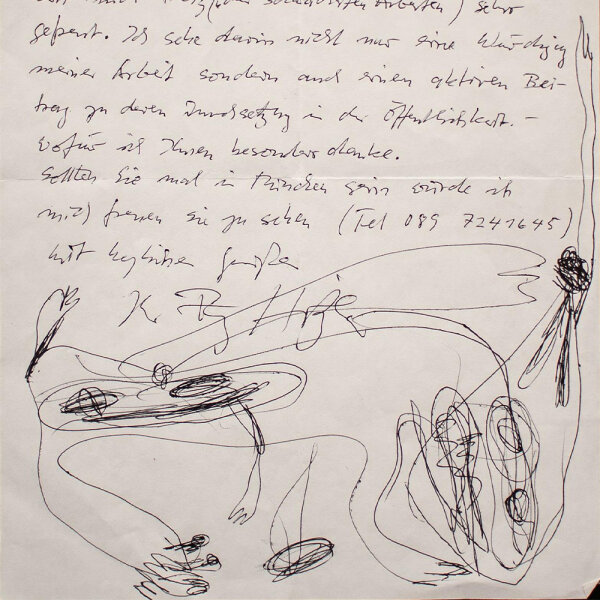 sehr
gefreut. Ich sehe darin nicht nur eine Würdigung
meiner Arbeit sondern auch einen aktiven Bei-
trag zu deren Durchsetzung in der Öffentlichkeit. –
wofür ich Ihnen besonders danke.
Sollten Sie mal in München sein würde ich
mich freuen sie zu sehen (Tel 089 7241645)
mit herzlichen Grüßen
K.